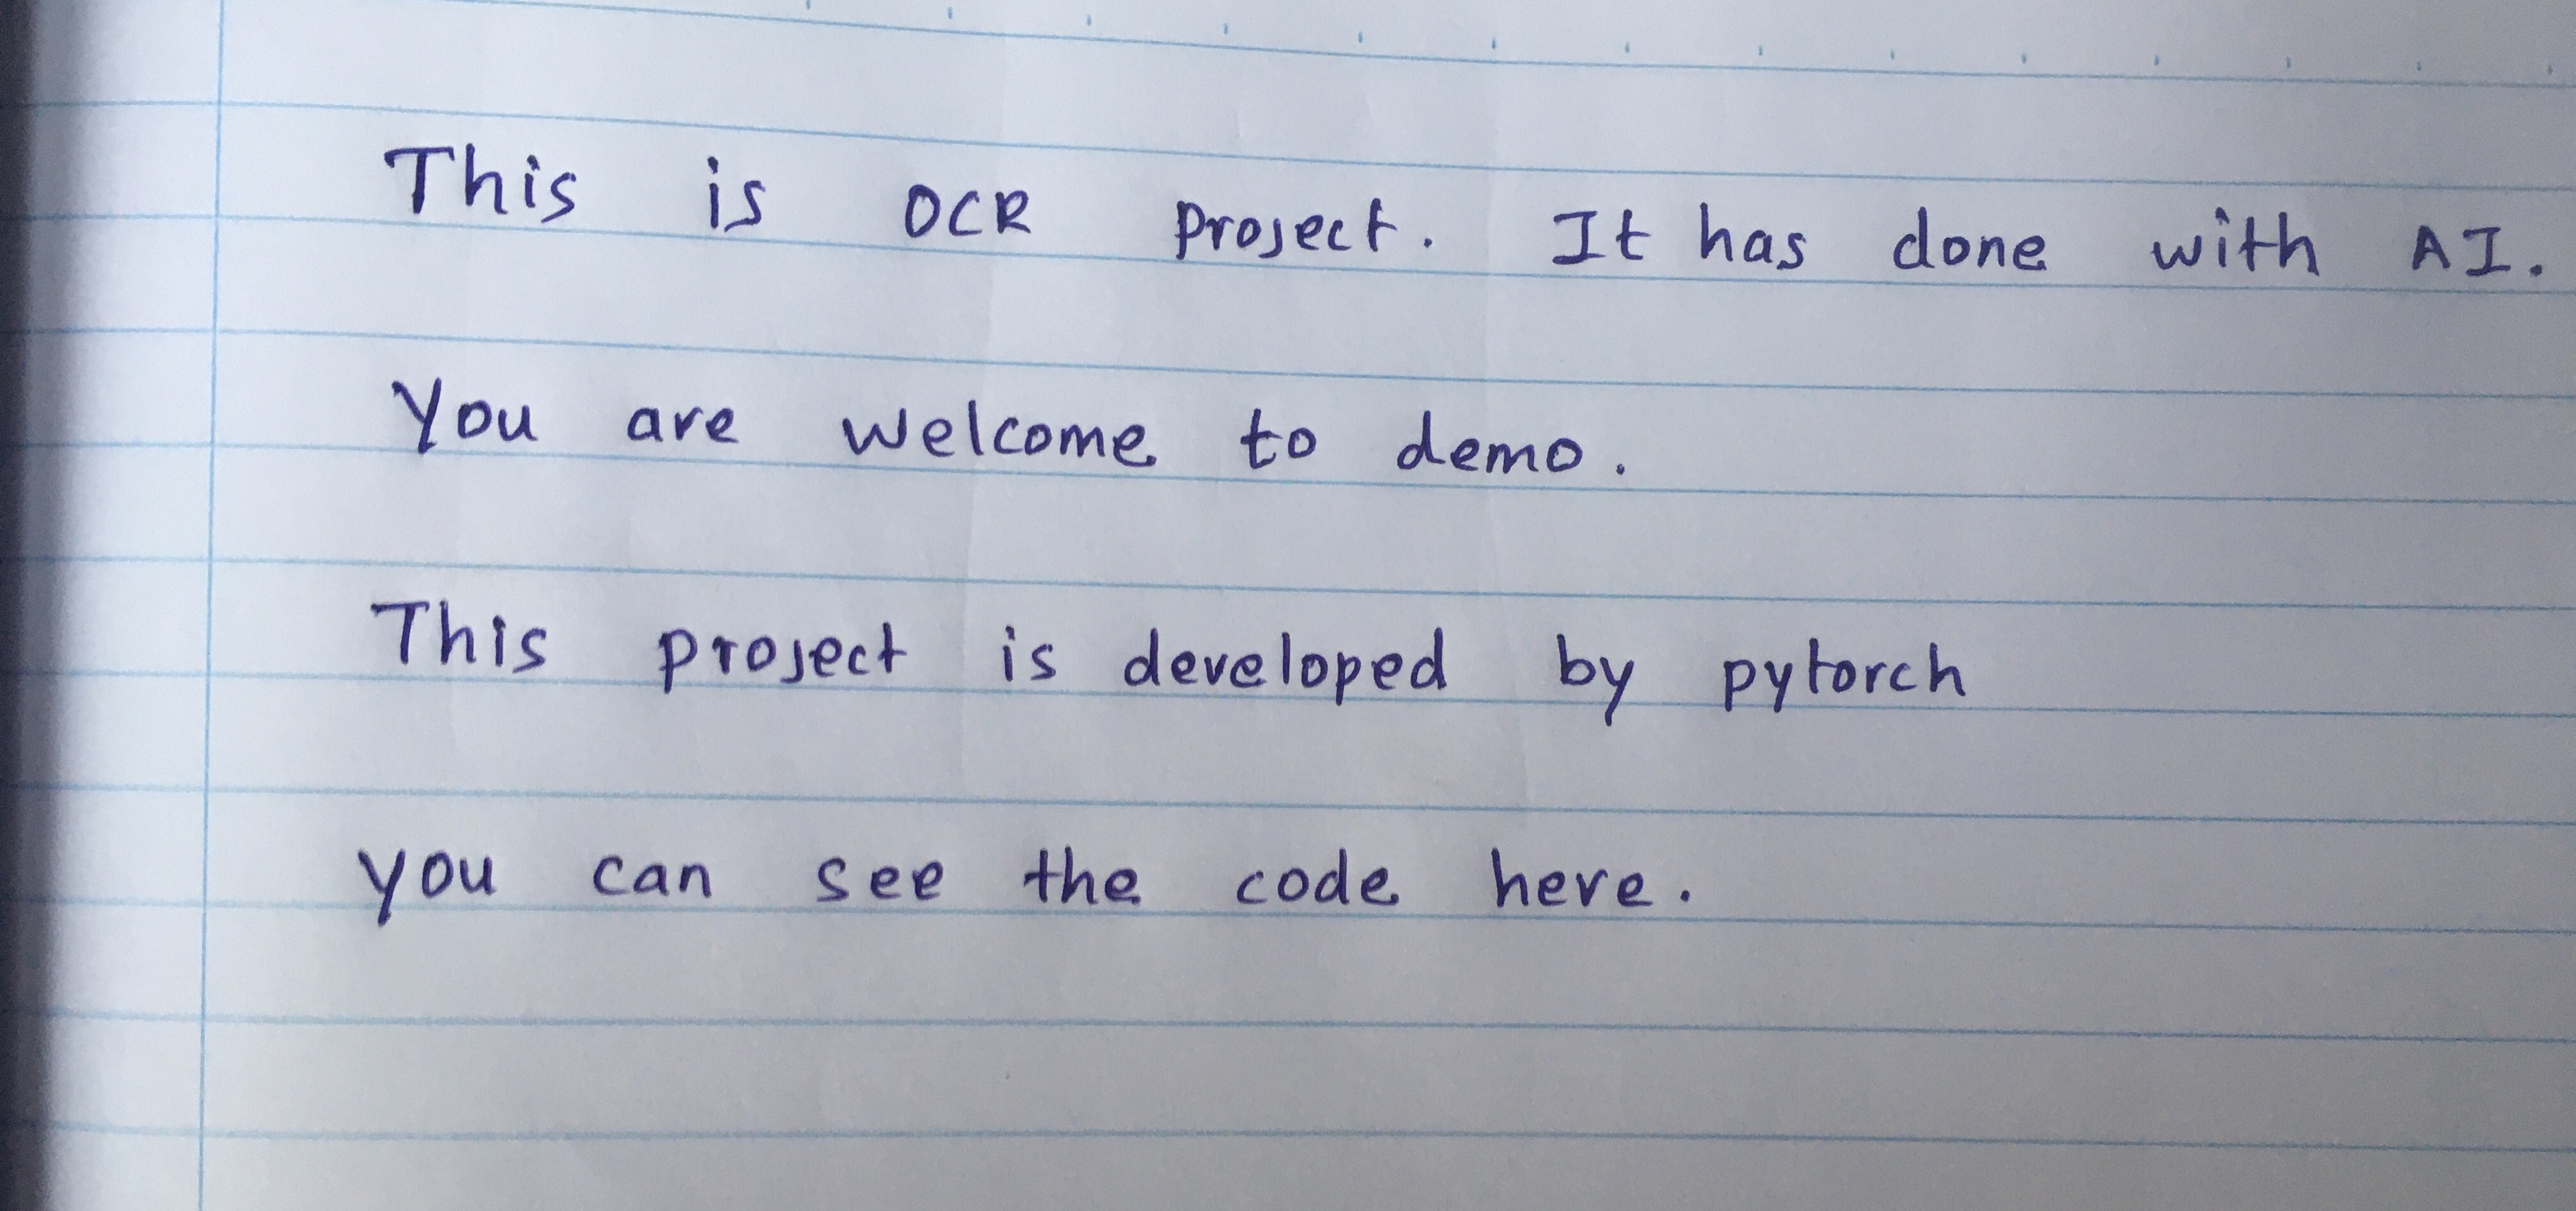 This is OCR project. It has done with AI.
You are welcome to demo.
This project is developed by pytorch
you can see the code here.